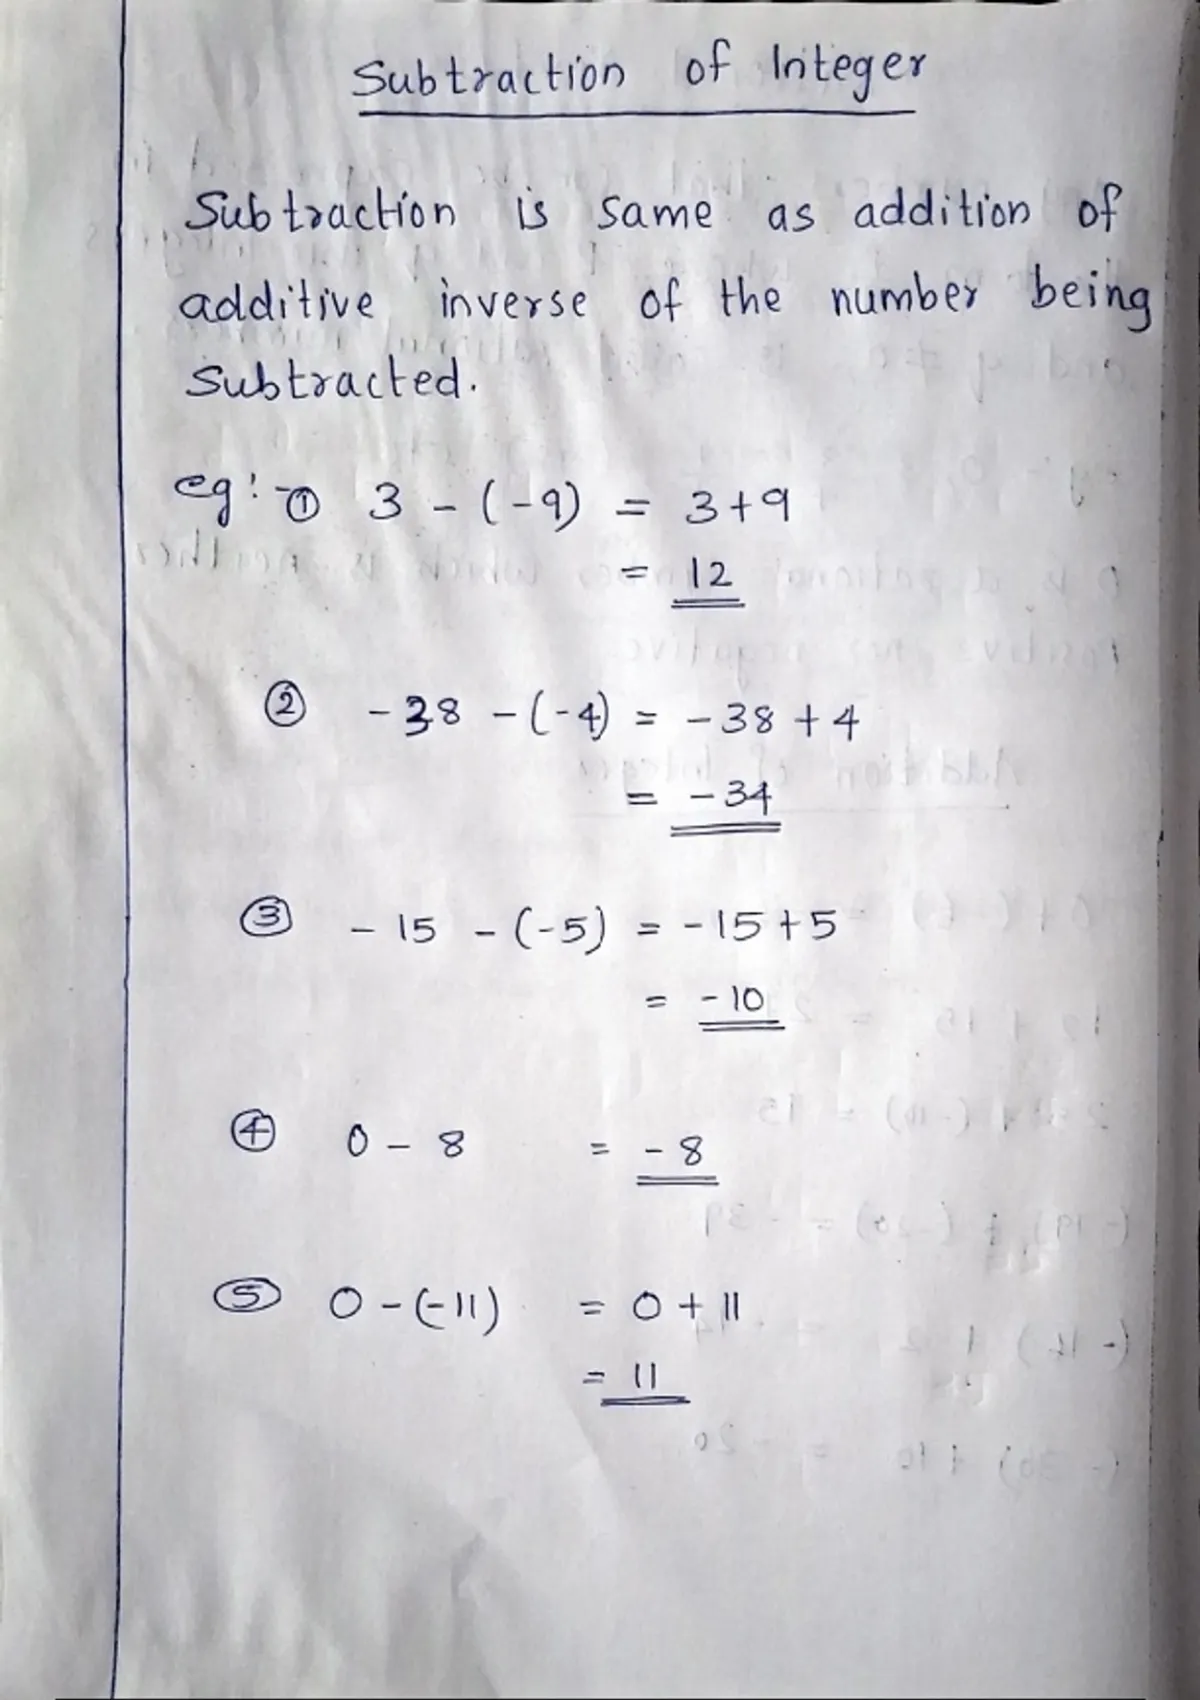 Subtraction of Integer
Subtraction is same as addition of
additive inverse of the number being
Subtracted.
eg: ① 3 - (-9) = 3+9
= 12
② -38 -(-4) = -38 + 4
= -34
③ - 15 - (-5) = -15 + 5
= -10
④ 0 - 8 = -8
⑤ 0 - (-11) = 0 + 11
= 11